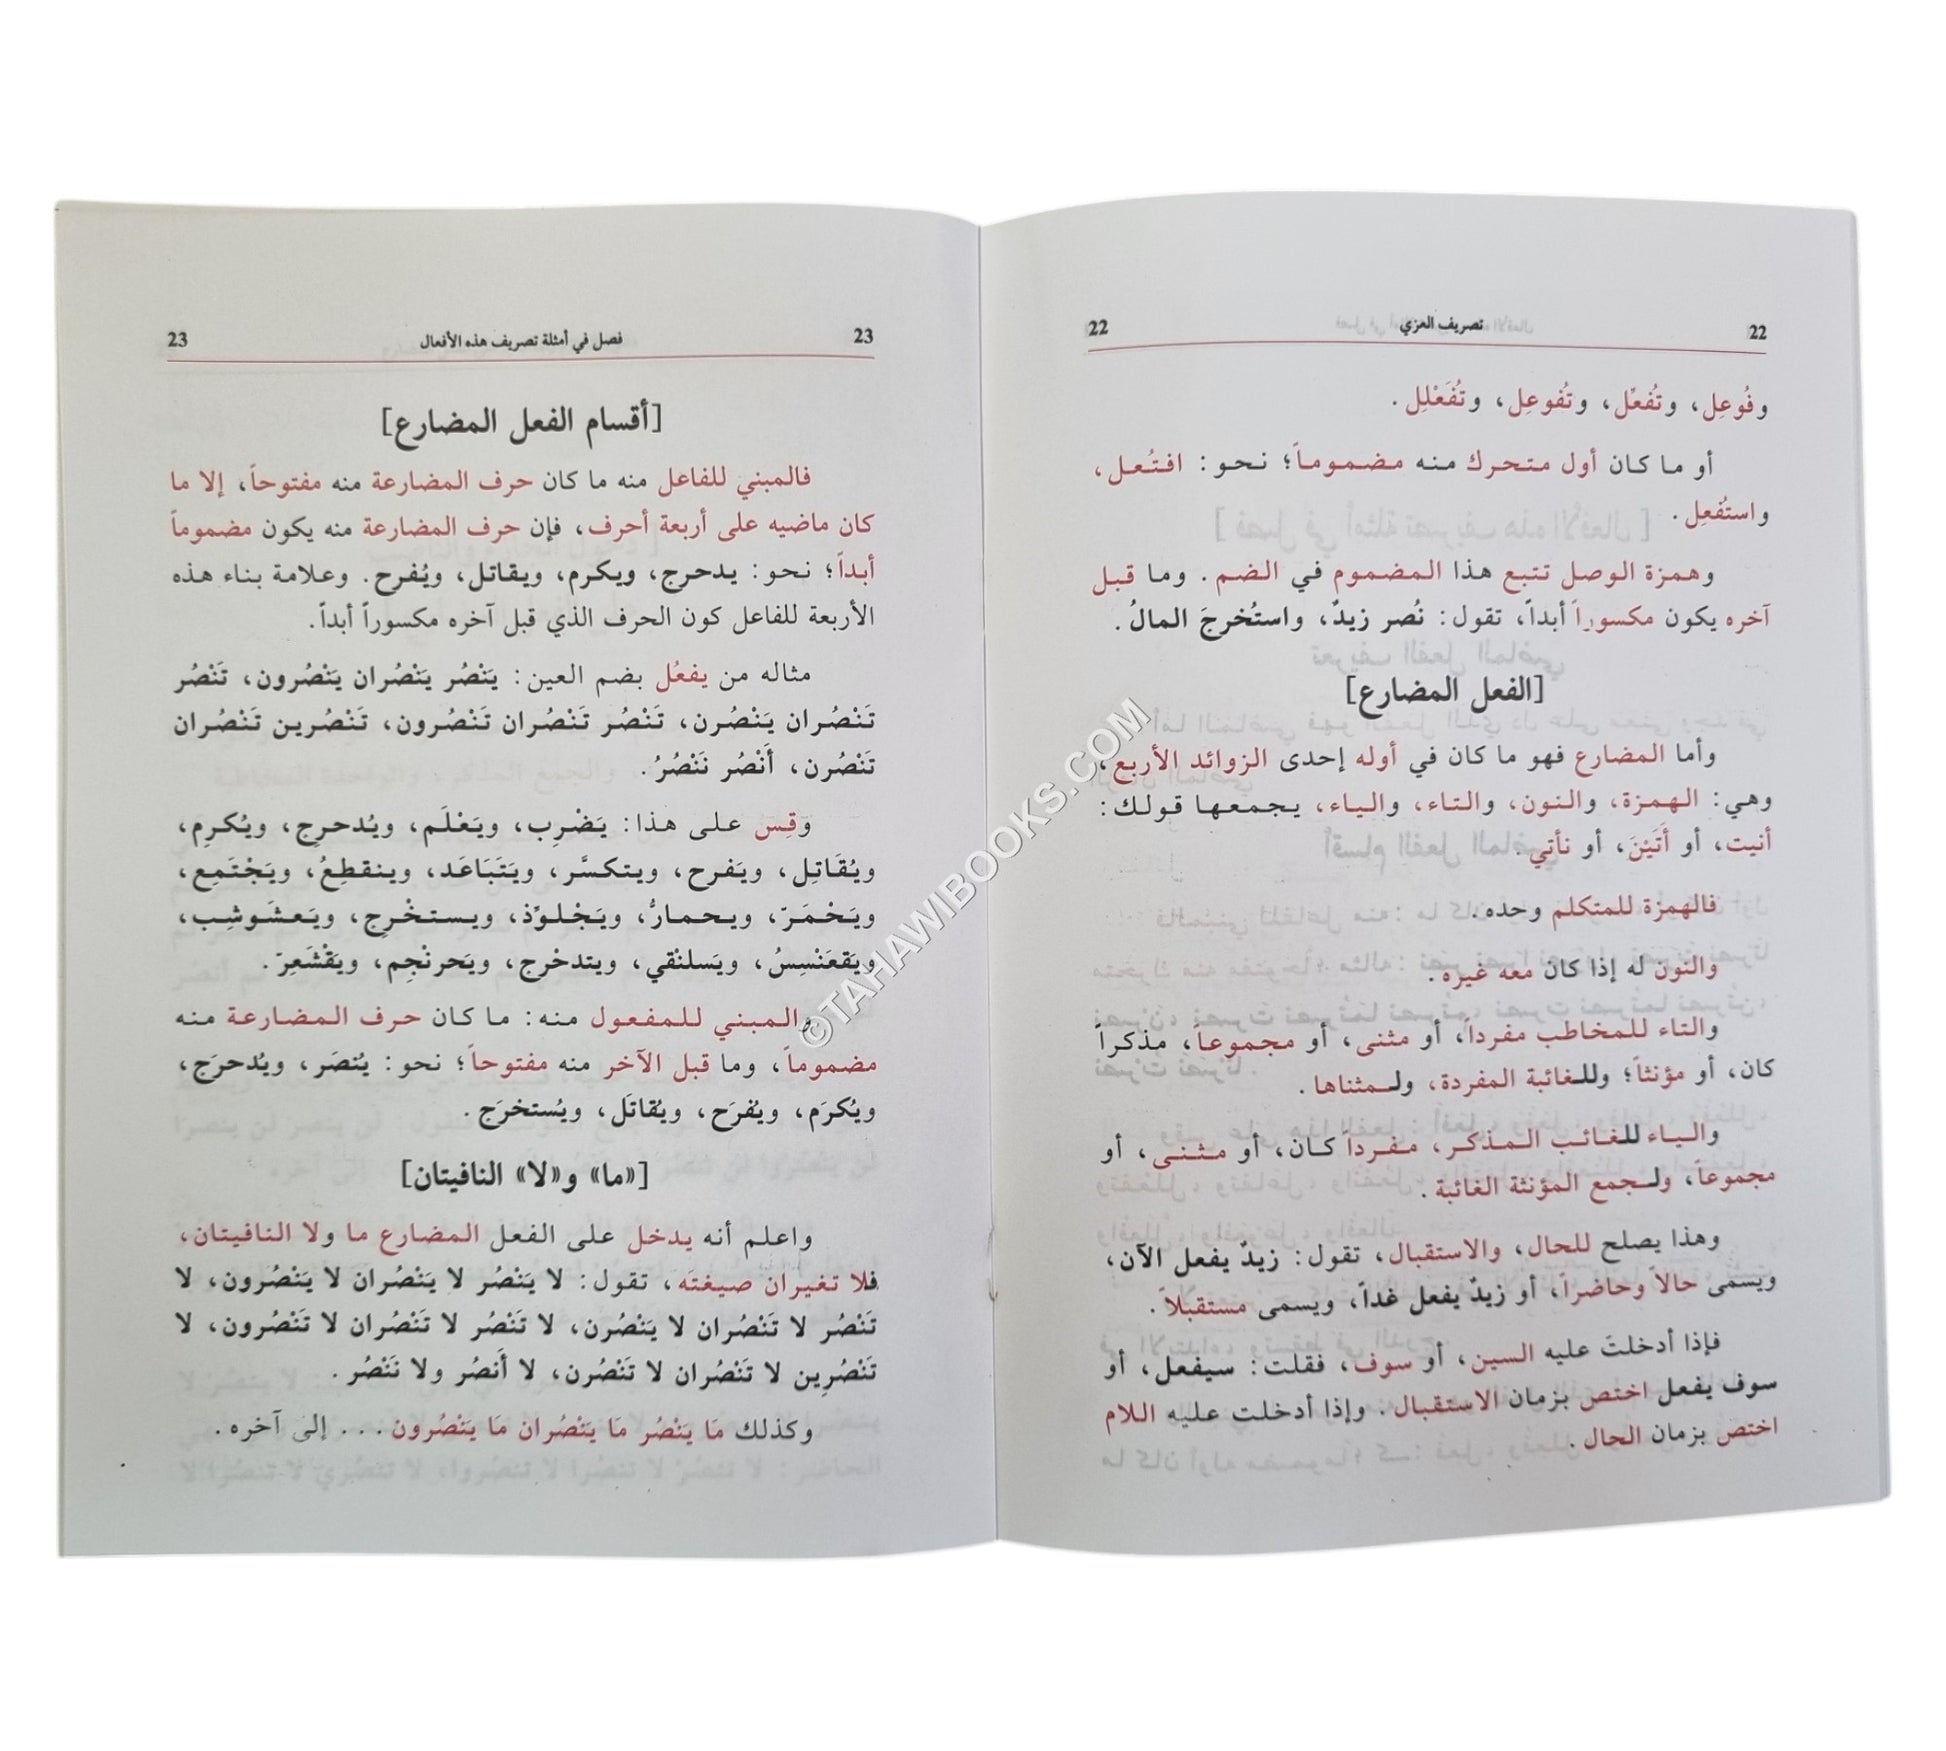 22 تصريف العزي 22
وفُوعِل، وتُفعِّل، وتُفوعِل، وتُفَعْلِل.
أو ما كان أول متحرك منه مضموماً؛ نحو: افتُعل،
واستُفعِل.
وهمزة الوصل تتبع هذا المضموم في الضم. وما قبل
آخره يكون مكسوراً أبداً، تقول: نُصر زيدٌ، واستُخرجَ المالُ.
[الفعل المضارع]
وأما المضارع فهو ما كان في أوله إحدى الزوائد الأربع،
وهي: الهمزة، والنون، والتاء، والياء، يجمعها قولك:
أنيت، أو أَتَيْنَ، أو نأتي.
فالهمزة للمتكلم وحده.
والنون له إذا كان معه غيره.
والتاء للمخاطب مفرداً، أو مثنى، أو مجموعاً، مذكراً
كان، أو مؤنثاً؛ وللغائبة المفردة، ولمثناها.
والياء للغائب المذكر، مفرداً كان، أو مثنى، أو
مجموعاً، ولجمع المؤنثة الغائبة.
وهذا يصلح للحال، والاستقبال، تقول: زيدٌ يفعل الآن،
ويسمى حالاً وحاضراً، أو زيدٌ يفعل غداً، ويسمى مستقبلاً.
فإذا أدخلتَ عليه السين، أو سوف، فقلت: سيفعل، أو
سوف يفعل اختص بزمان الاستقبال. وإذا أدخلت عليه اللام
اختص بزمان الحال.
23 فصل في أمثلة تصريف هذه الأفعال 23
[أقسام الفعل المضارع]
فالمبني للفاعل منه ما كان حرف المضارعة منه مفتوحاً، إلا ما
كان ماضيه على أربعة أحرف، فإن حرف المضارعة منه يكون مضموماً
أبداً؛ نحو: يدحرج، ويكرم، ويقاتل، ويُفرح. وعلامة بناء هذه
الأربعة للفاعل كون الحرف الذي قبل آخره مكسوراً أبداً.
مثاله من يفعُل بضم العين: يَنْصُر يَنْصُران يَنْصُرون، تَنْصُر
تَنْصُران يَنْصُرن، تَنْصُر تَنْصُران تَنْصُرون، تَنْصُرين تَنْصُران
تَنْصُرن، أَنْصُر نَنْصُرُ.
وقِس على هذا: يَضْرِب، ويَعْلَم، ويُدحرِج، ويُكرِم،
ويُقَاتِل، ويَفرح، ويتكسَّر، ويَتَبَاعَد، وينقطِعُ، ويَجْتَمِع،
ويَحْمَرّ، ويحمارُّ، ويَجْلوِّذ، ويستخْرِج، ويَعشَوشِب،
ويَقعَنْسِسُ، ويَسلنْقي، ويتدحْرج، ويَحرنْجِم، ويَقْشَعِرّ.
والمبني للمفعول منه: ما كان حرف المضارعة منه
مضموماً، وما قبل الآخر منه مفتوحاً؛ نحو: يُنصَر، ويُدحرَج،
ويُكرَم، ويُفرَح، ويُقاتَل، ويُستخرَج.
[«ما» و«لا» النافيتان]
واعلم أنه يدخل على الفعل المضارع ما ولا النافيتان،
فلا تغيران صيغتَه، تقول: لا يَنْصُر لا يَنْصُران لا يَنْصُرون، لا
تَنْصُر لا تَنْصُران لا يَنْصُرن، لا تَنْصُر لا تَنْصُران لا تَنْصُرون، لا
تَنْصُرِين لا تَنْصُران لا تَنْصُرن، لا أَنصُر ولا نَنْصُر.
وكذلك مَا يَنْصُر مَا يَنْصُران مَا يَنْصُرون... إلى آخره.
©TAHAWIBOOKS.COM